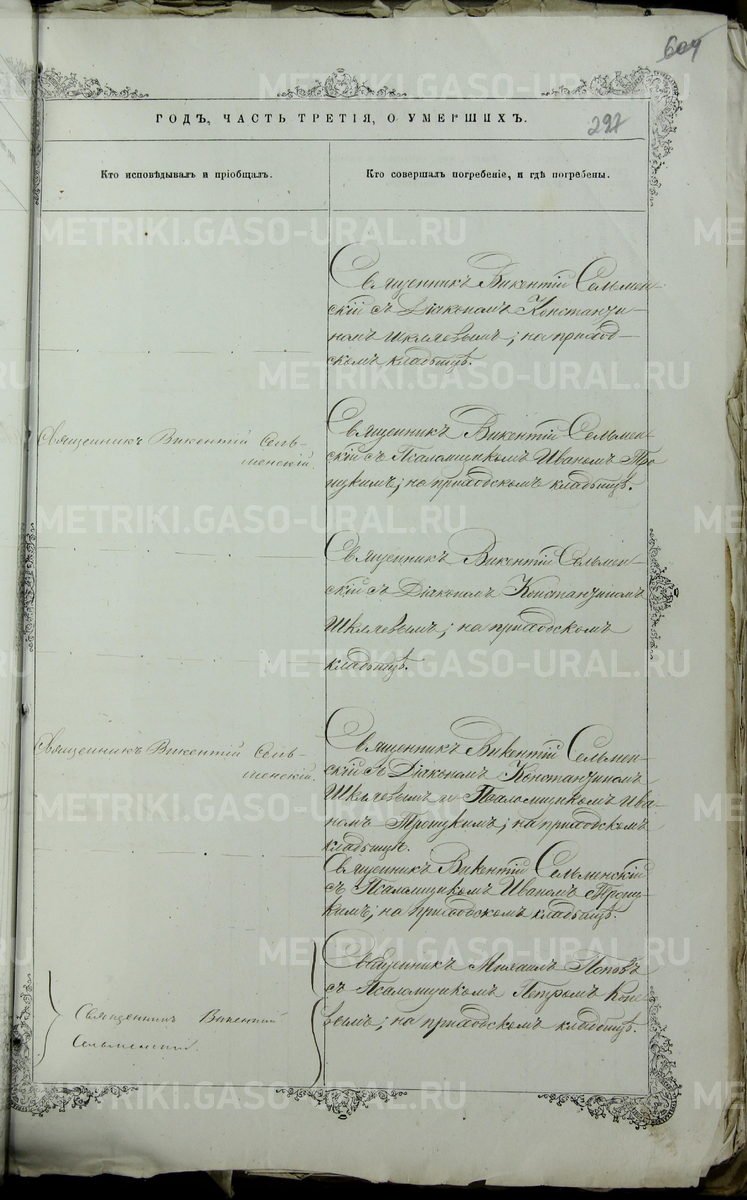 604
ГОДЪ, ЧАСТЬ ТРЕТІЯ, О УМЕРШИХЪ.
297
Кто исповѣдывалъ и пріобщалъ.
Кто совершалъ погребеніе, и гдѣ погребены.
Священникъ Викентій Сельмен-
скій съ Діакономъ Константи-
номъ Шкляевымъ; на приход-
скомъ кладбищѣ.
Священникъ Викентій Сель-
менскій.
Священникъ Викентій Сельмен-
скій съ Псаломщикомъ Иваномъ Тро
ицкимъ; на приходскомъ кладбищѣ.
Священникъ Викентій Сельмен-
скій съ Діакономъ Константиномъ
Шкляевымъ; на приходскомъ
кладбищѣ.
Священникъ Викентій Сель-
менскій.
Священникъ Викентій Сельмен-
скій съ Діакономъ Константиномъ
Шкляевымъ и Псаломщикомъ Ива-
номъ Троицкимъ; на приходскомъ
кладбищѣ.
Священникъ Викентій Сельминскій
съ Псаломщикомъ Иваномъ Троиц-
кимъ; на приходскомъ кладбищѣ.
Священникъ Викентій
Сельменскій.
Священникъ Михаилъ Поповъ
съ Псаломщикомъ Петромъ
на приходскомъ кладбищѣ.
METRIKI.GASO-URAL.RU